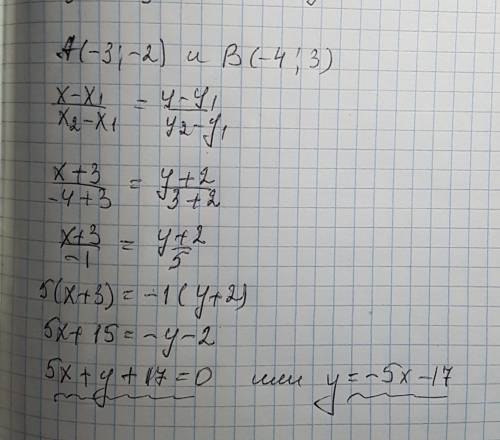 A(-3; -2) и B(-4; 3)
x-x₁/x₂-x₁ = y-y₁/y₂-y₁
x+3/-4+3 = y+2/3+2
x+3/-1 = y+2/5
5(x+3) = -1(y+2)
5x+15 = -y-2
5x+y+17=0 или y=-5x-17